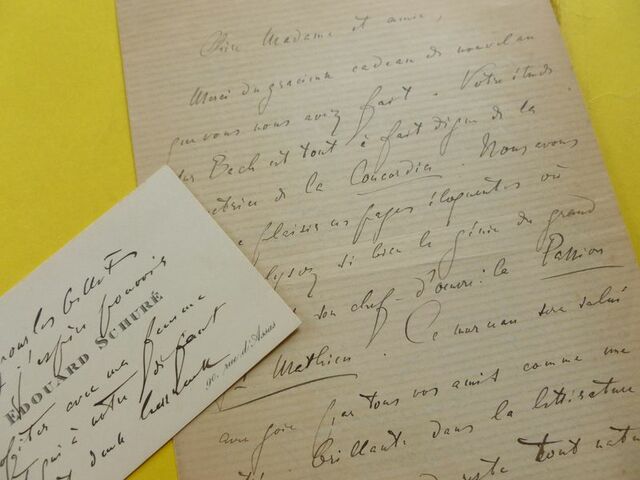 Chère Madame et amie,
Merci du gracieux cadeau de nouvel an
que vous nous avez fait. Votre étude
sur Bach est tout à fait digne de la
de la Concordia. Nous avons
plaisir ces pages éloquentes où
si bien le génie du grand
son chef-d'œuvre: la Passion
St Mathieu. Ce morceau sera salué
avec joie par tous vos amis comme une
brillante dans la littérature
tout
les billets
j'espère pouvoir
EDOUARD SCHURÉ
90, rue d'Assas
avec ma femme
à votre